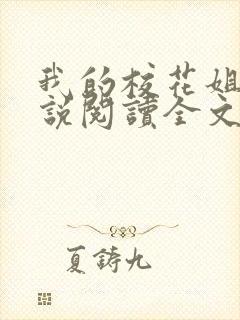 我的校花姐
說閱讀全文
夏鑄九